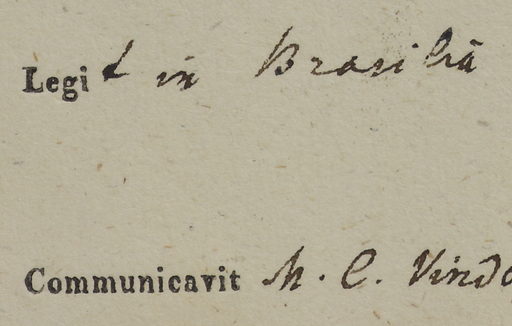 Legit in Brasiliâ
Communicavit M. C. Vindo